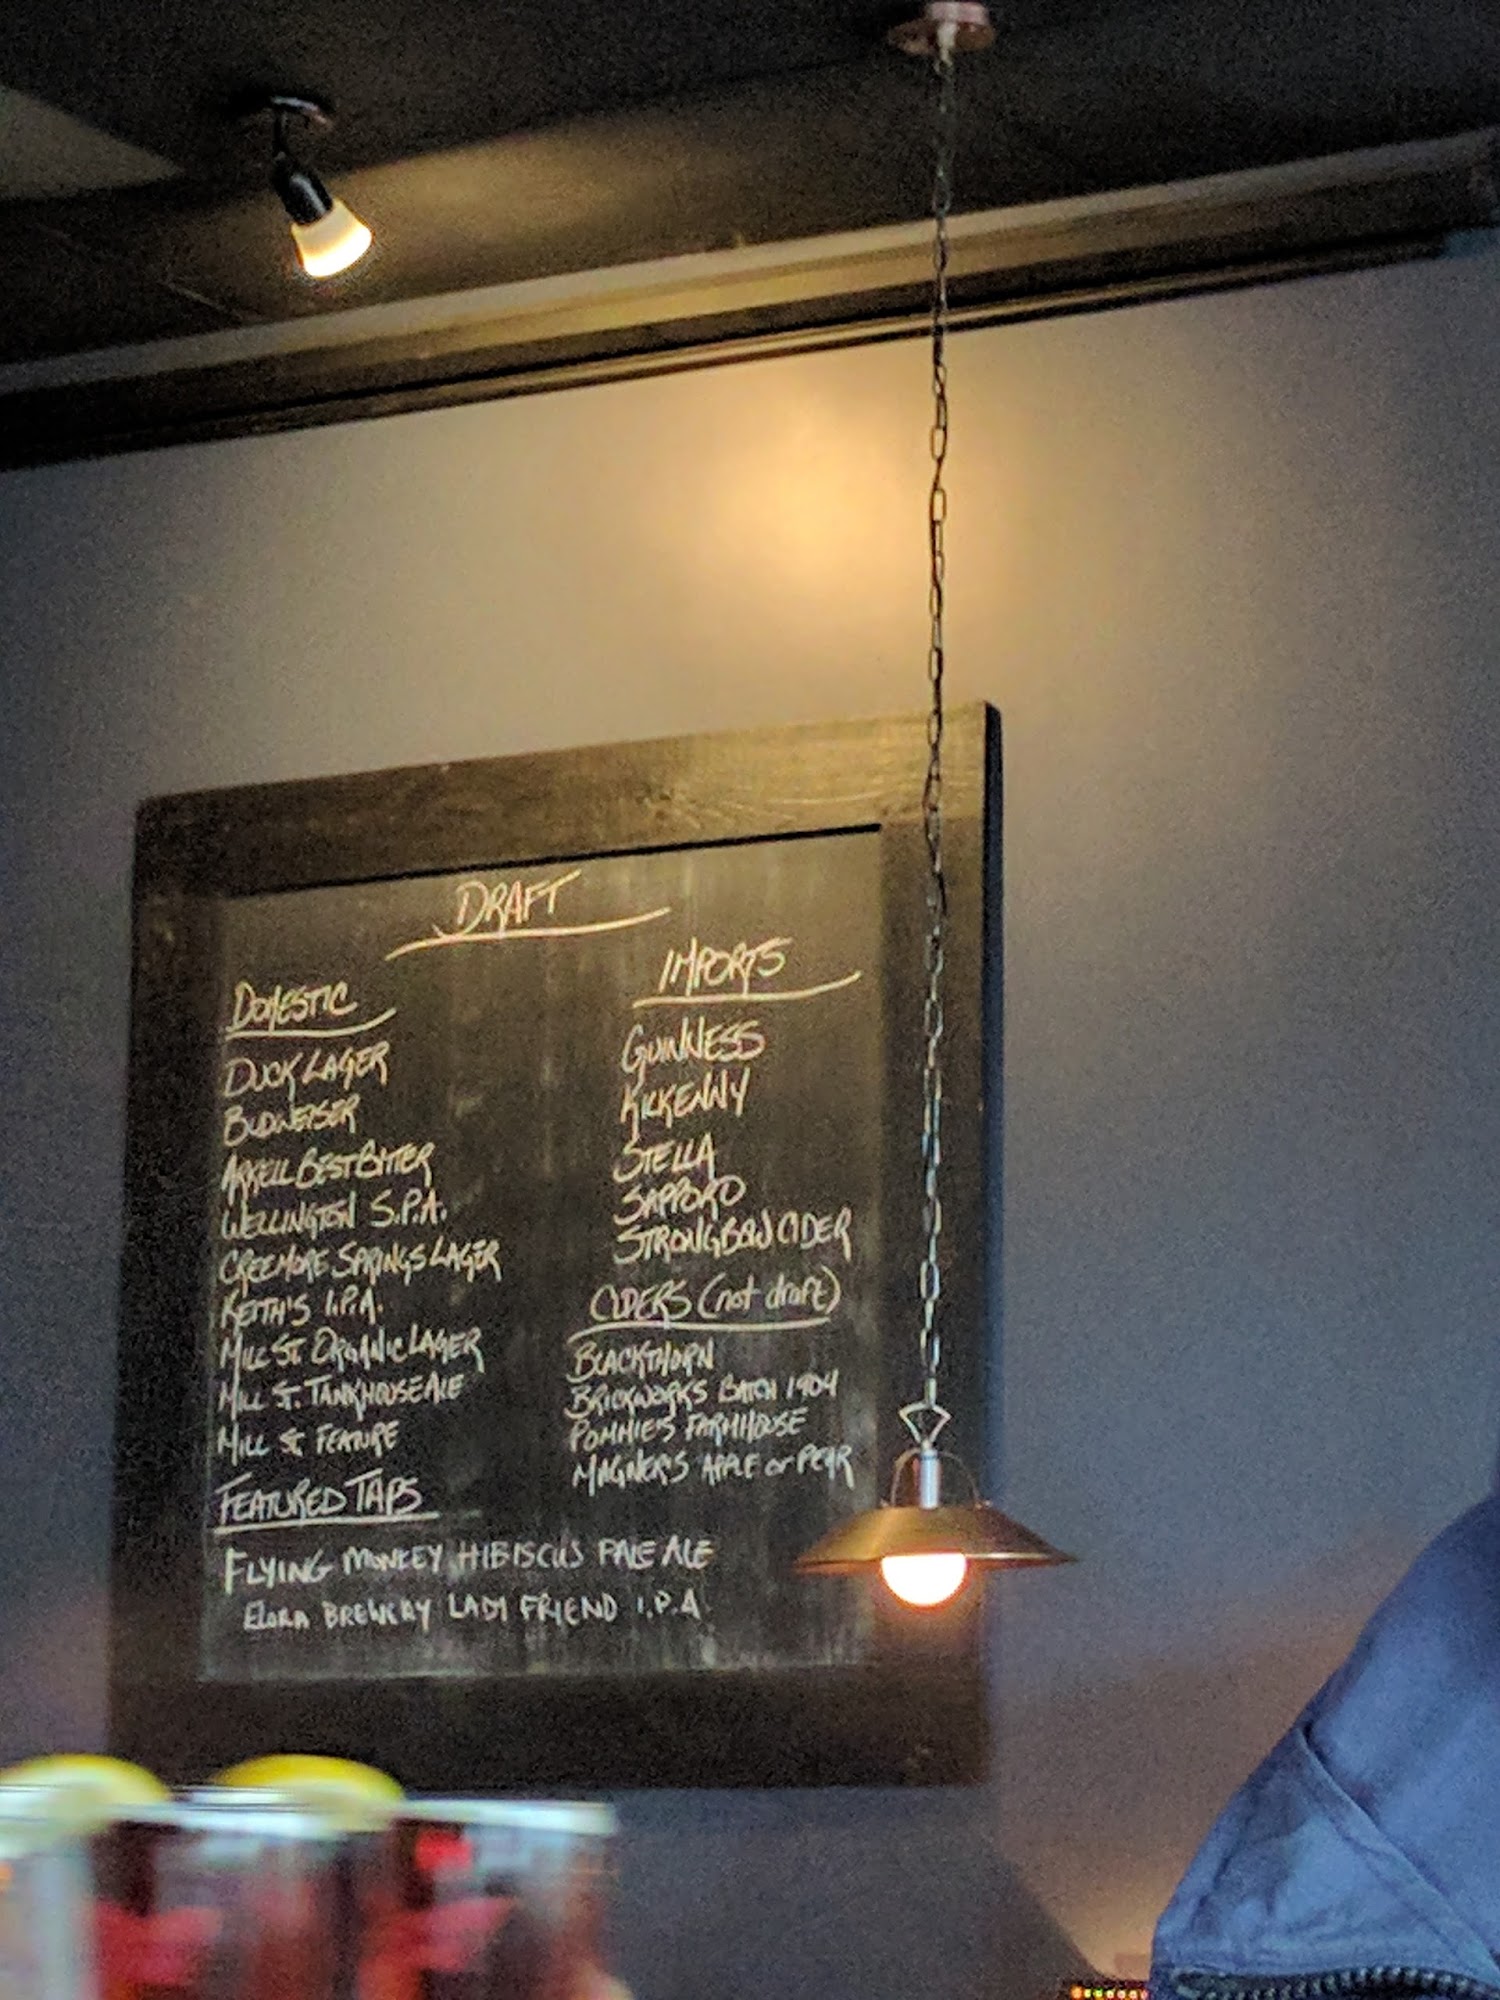 DRAFT
DOMESTIC
DUCK LAGER
BUDWEISER
ARKELL BEST BITTER
WELLINGTON S.P.A.
CREEMORE SPRINGS LAGER
KEITH'S I.P.A.
MILL ST. ORGANIC LAGER
MILL ST. TANKHOUSE ALE
MILL ST FEATURE
FEATURED TAPS
FLYING MONKEY HIBISCUS PALE ALE
ELORA BREWERY LADY FRIEND I.P.A.
IMPORTS
GUINNESS
KILKENNY
STELLA
SAPPORO
STRONGBOW CIDER
CIDERS (not draft)
BLACKTHORN
BRICKWORKS BATCH 1904
POMMIE'S FARMHOUSE
MAGNER'S APPLE or PEAR